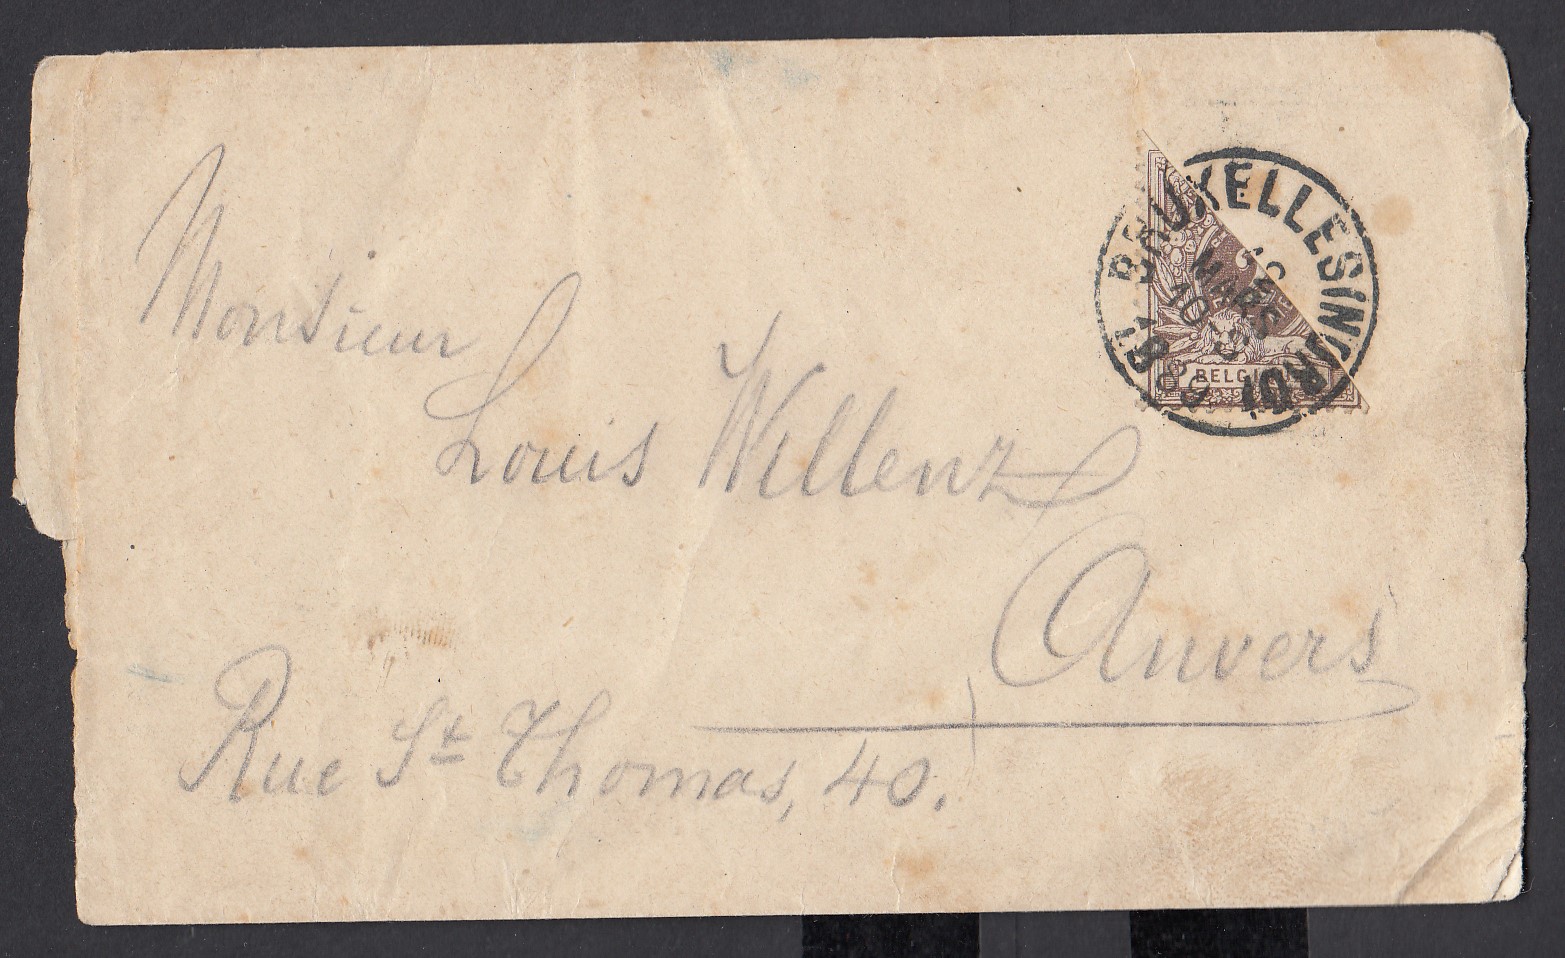 BRUXELLES
MARS
BELGI
Monsieur
Louis Willenz
Anvers
Rue St Thomas, 40.